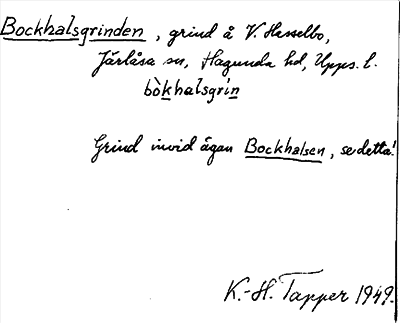 Bockhalsgrinden, grind å V. Hasselbo,
Järlåsa sn, Hagunda hd, Upps. l.
bòkhalsgrin
Grind invid ägan Bockhalsen, se detta!
K.-H. Tapper 1949.